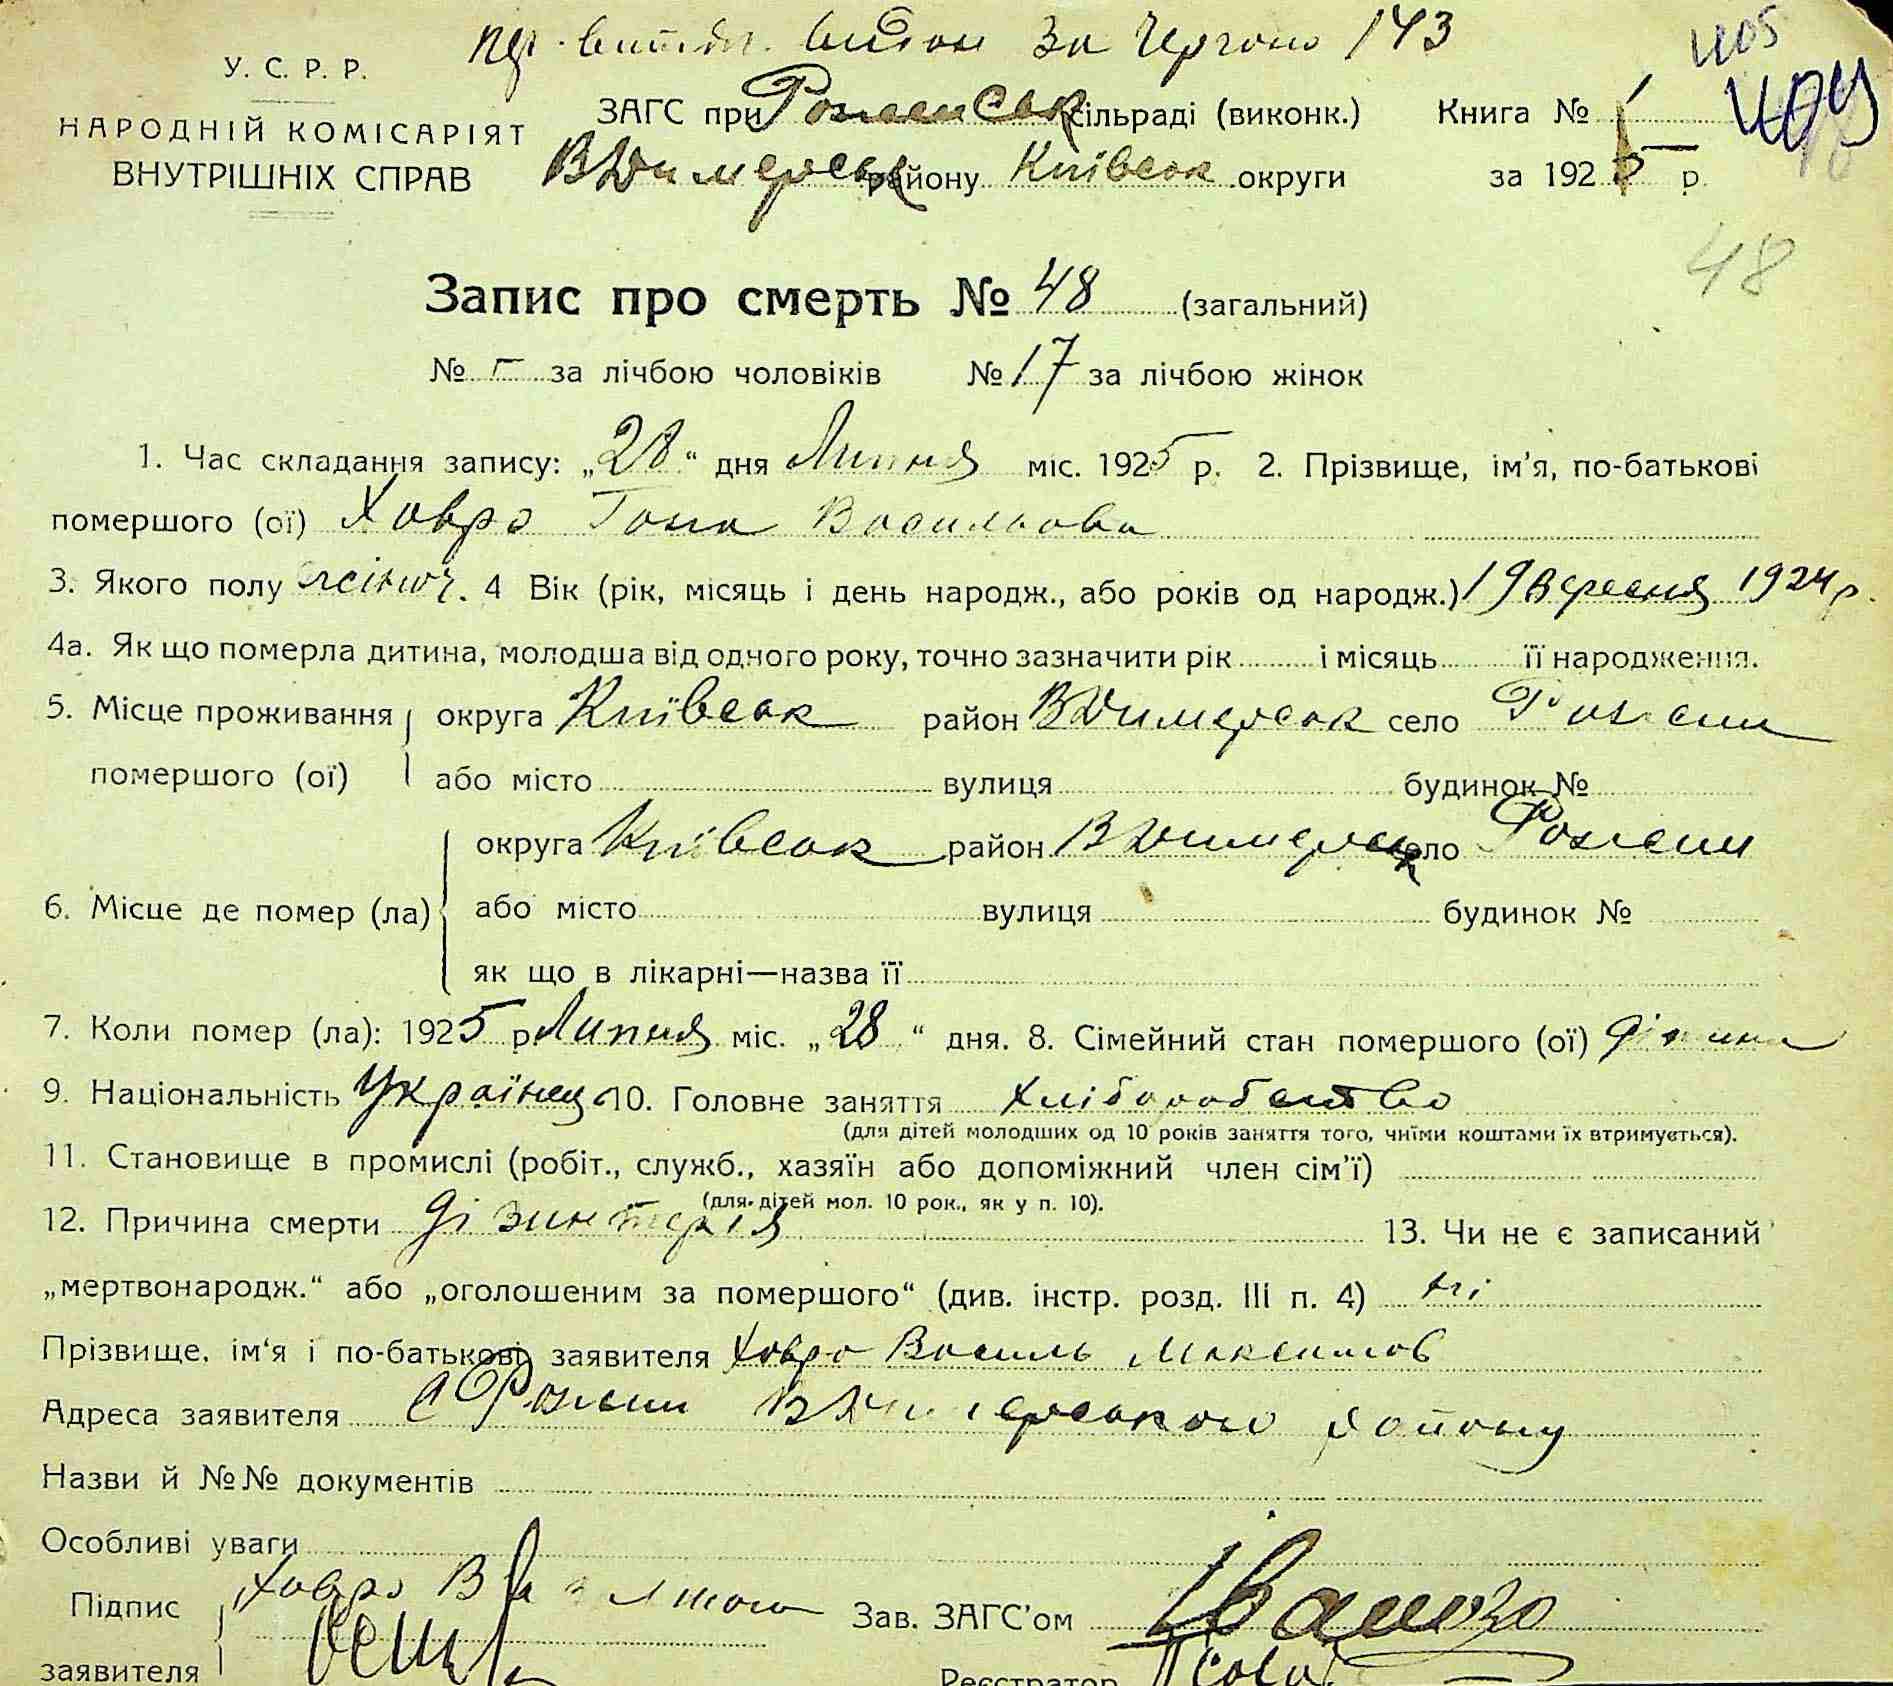 за 143
У. С. Р. Р.
НАРОДНІЙ КОМІСАРІЯТ
ВНУТРІШНІХ СПРАВ
ЗАГС при Роженськ сільраді (виконк.)
ВДимерськ району Київськ округи
Книга № 1
за 1925 р.
48
Запис про смерть № 48 (загальний)
№ – за лічбою чоловіків № 17 за лічбою жінок
1. Час складання запису: „28“ дня Липня міс. 1925 р. 2. Прізвище, ім'я, по-батькові
помершого (ої) Ховро Васильова
3. Якого полу жіноч. 4 Вік (рік, місяць і день народж., або років од народж.) 19 Вересня 1924 р.
4а. Як що померла дитина, молодша від одного року, точно зазначити рік і місяць її народження.
5. Місце проживання округа Київськ район ВДимерськ село Рожени
помершого (ої) або місто вулиця будинок №
округа Київськ район ВДимерськ село Рожени
6. Місце де помер (ла) або місто вулиця будинок №
як що в лікарні—назва її
7. Коли помер (ла): 1925 р Липня міс. „28“ дня. 8. Сімейний стан помершого (ої) дитина
9. Національність Українец 10. Головне заняття хліборобство
(для дітей молодших од 10 років заняття того, чиїми коштами їх втримується).
11. Становище в промислі (робіт., служб., хазяїн або допоміжний член сім'ї)
(для дітей мол. 10 рок., як у п. 10).
12. Причина смерти дізинтерія 13. Чи не є записаний
„мертвонародж.“ або „оголошеним за помершого“ (див. інстр. розд. III п. 4) ні
Прізвище, ім'я і по-батькові заявителя Ховро Василь Максимов
Адреса заявителя с Рожени ВДимерського району
Назви й №№ документів
Особливі уваги
Підпис Ховро В Зав. ЗАГС'ом
заявителя Реєстратор